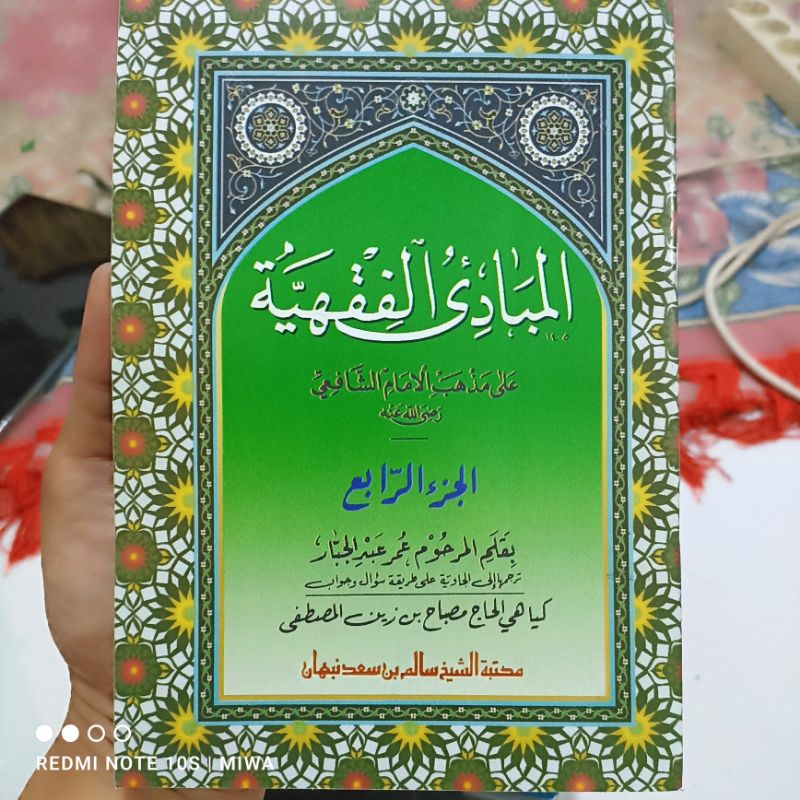 المبادئ الفقهية
١٤٠٥
على مذهب الإمام الشافعي
رضى الله عنه
الجزء الرابع
بقلم المرحوم عمر عبد الجبار
ترجمها إلى الجاوية على طريقة سؤال وجواب
كياهي الحاج مصباح بن زين المصطفى
مكتبة الشيخ سالم بن سعد نبهان
REDMI NOTE 10S | MIWA